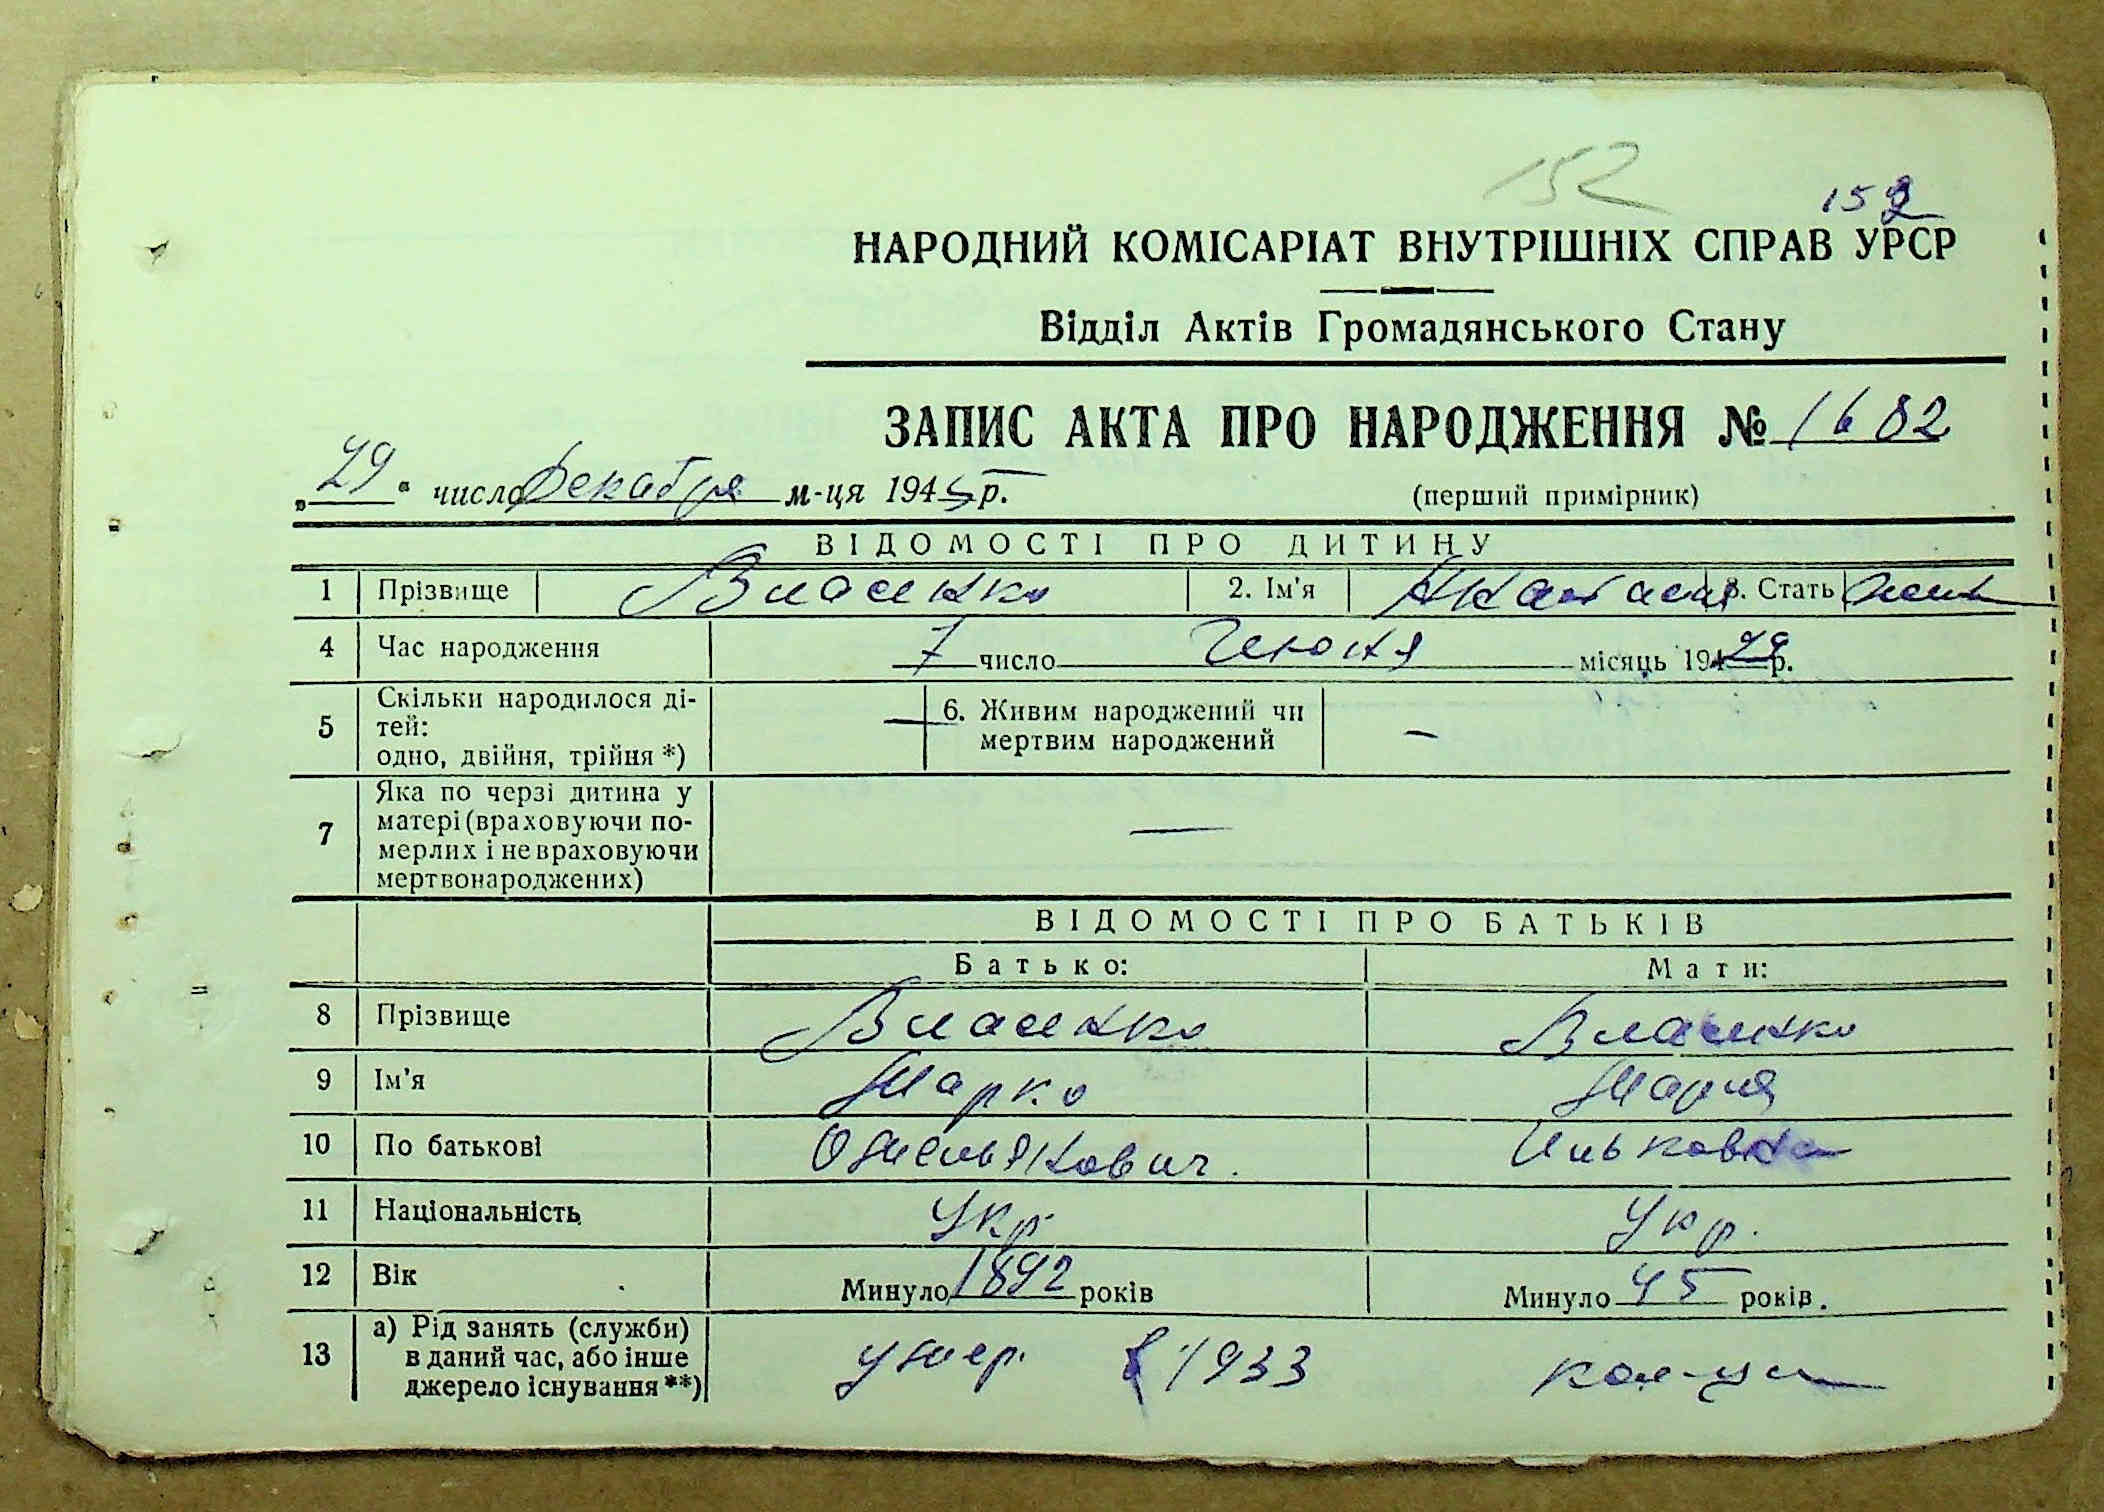 152
152
НАРОДНИЙ КОМІСАРІАТ ВНУТРІШНІХ СПРАВ УРСР
Відділ Актів Громадянського Стану
ЗАПИС АКТА ПРО НАРОДЖЕННЯ № 1682
„29“ число Декабря м-ця 1945 р.
(перший примірник)
ВІДОМОСТІ ПРО ДИТИНУ
1 Прізвище Власенко 2. Ім'я 3. Стать жен
4 Час народження 7 число Июня місяць 1929 р.
5 Скільки народилося ді-
тей:
одно, двійня, трійня *) — 6. Живим народжений чи
мертвим народжений —
7 Яка по черзі дитина у
матері (враховуючи по-
мерлих і не враховуючи
мертвонароджених) —
ВІДОМОСТІ ПРО БАТЬКІВ
Батько: Мати:
8 Прізвище Власенко Власенко
9 Ім'я Марко Мария
10 По батькові Омельянович. Ильковна
11 Національність Укр. Укр.
12 Вік Минуло 1892 років Минуло 45 років.
13 а) Рід занять (служби)
в даний час, або інше
джерело існування **) умер. в 1933 кол-ца